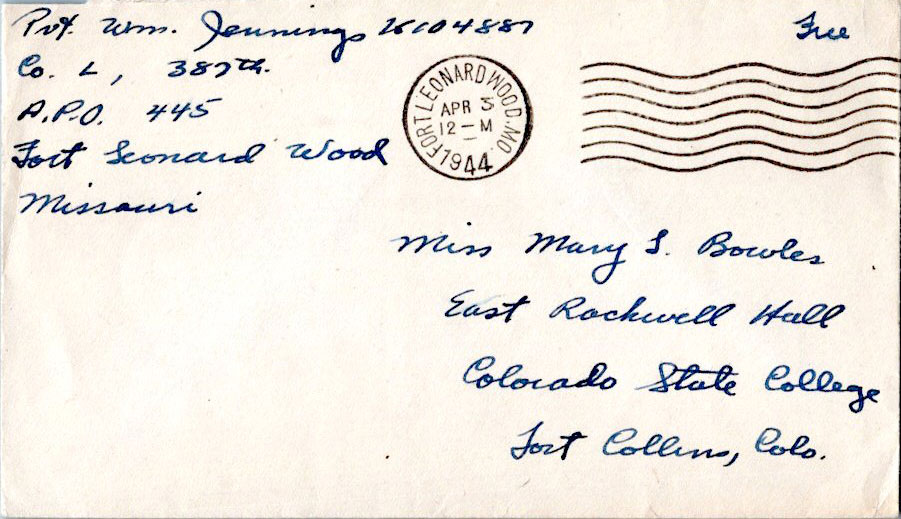 Pvt. Wm. Jennings K104887
Free
Co. L, 387th.
A.P.O. 445
Fort Leonard Wood
Missouri
FORT LEONARD WOOD, MO.
APR 3
12 - M
1944
Miss Mary S. Bowles
East Rockwell Hall
Colorado State College
Fort Collins, Colo.